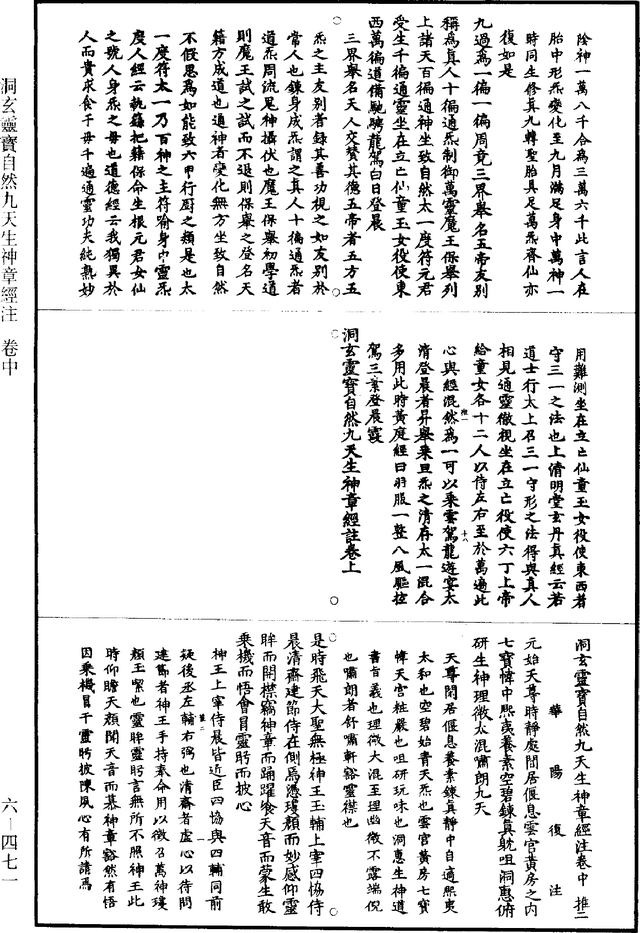 陰神一萬八千合為三萬六千此言人在
胎中形炁變化至九月滿足身中萬神一
時同生修真九轉聖胎具足萬炁齊仙亦
復如是
九過為一徧一徧周竟三界舉名五帝友别
稱為真人十徧通炁制御萬靈魔王保舉列
上諸天百徧通神坐致自然太一度符元君
受生千徧通靈坐在立亡仙童玉女役使東
西萬徧道備馳騁龍駕白日登晨
三界舉名天人交賛其德五帝者五方五
炁之主友别者録其善功視之如友别於
常人也錬身成炁謂之真人十徧通炁者
道炁周流尸神攝伏也魔王保舉初學道
則魔王試之試而不退則保舉之登名天
籍方成道也通神者變化無方坐致自然
不假思為如能致六甲行厨之類是也太
一度符太一乃百神之主符喻身中靈炁
度人經云執籙把籍保命生根元君女仙
之號人身炁之母也道德經云我獨異於
人而貴求食于母千遍通靈功夫純熟妙
用難測坐在立亡仙童玉女役使東西者
守三一之法也上清明堂玄丹真經云若
道士行太上召三一守形之法得與真人
相見通靈徹視坐在立亡役使六丁上帝
給童女各十二人以侍左右至於萬遍此
心與經混然為一可以乗雲駕龍遊宴太
清登晨者昇舉乗旦炁之清存太一混合
多用此時黃庭經曰羽服一整八風驅控
駕三素登晨霞
洞玄靈寶自然九天生神章經註卷上
洞玄靈寶自然九天生神章經注卷中 推二
華陽復注
元始天尊時靜處閒居偃息雲宮黃房之内
七寶幃中熙夷養素空碧錬真耽咀洞慧俯
研生神理微太混嘯朗九天
天尊閒居偃息養素錬真靜中自適熙夷
太和也空碧始青天炁也雲宮黃房七寶
幃天宮粧嚴也咀研玩味也洞慧生神道
書旨義也理微大混至理幽微不露端倪
也嘯朗者舒嘯軒豁靈襟也
是時飛天大聖無極神王玉輔上宰四恊侍
晨清齋建節侍在側焉憑瓊顏而妙感仰靈
眸而開襟竊神章而踊躍飡天音而蒙生敢
乗機而悟會冐靈眄而披心
神王上宰侍晨皆近臣四恊與四輔同前
疑後丞左輔右弼也清齋者虚心以待問
建節者神王手持奉命用以徵召萬神瓊
顏玉㒵也靈眸靈眄言無所不照神王此
時仰瞻天顏聞天音而慕神章豁然有悟
因乗機冐干靈眄披陳夙心有所請焉
洞玄靈寶自然九天生神章經注 卷中
六—四七一